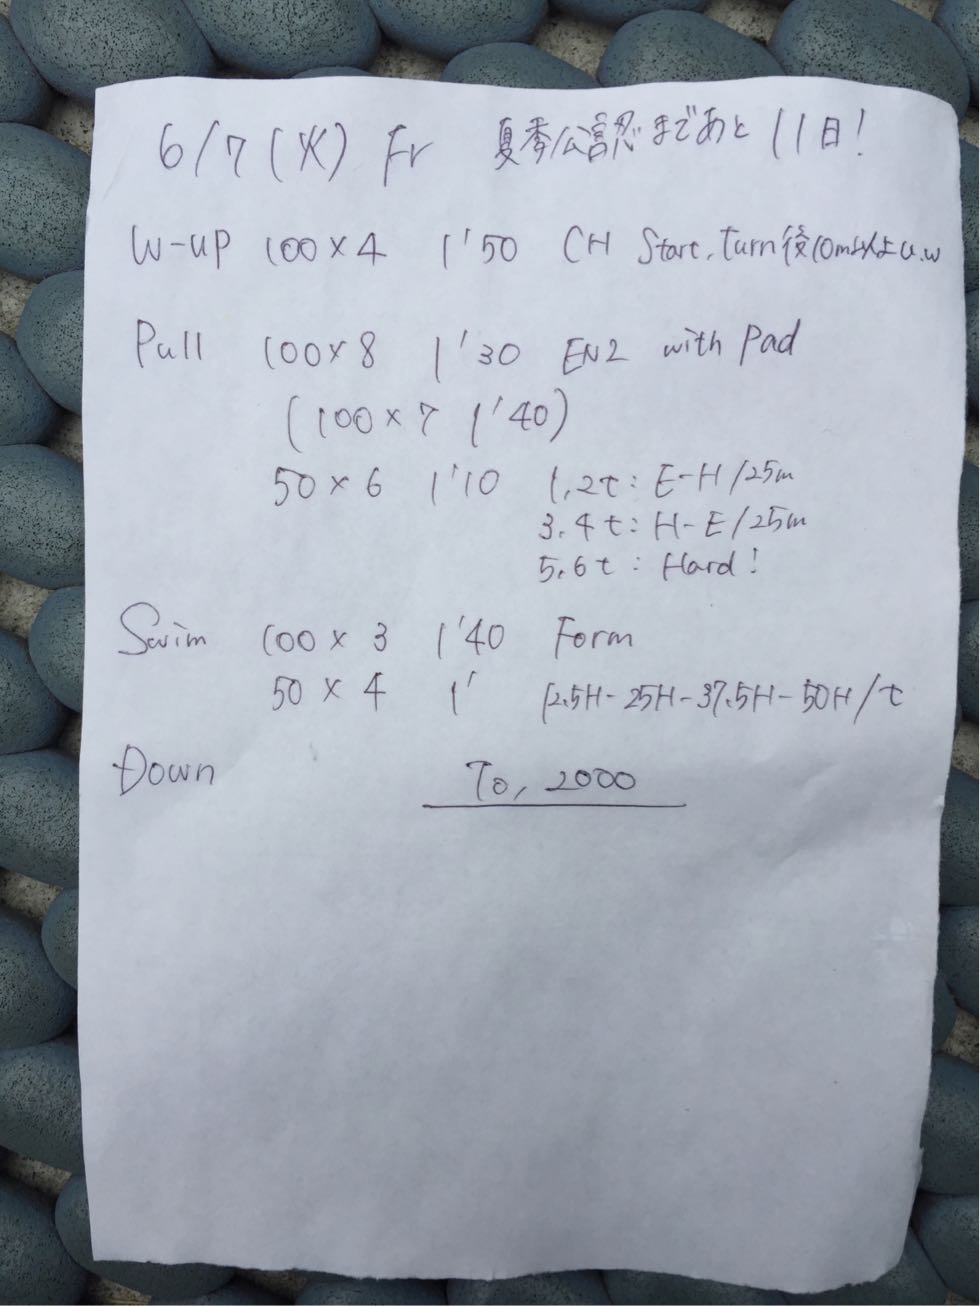 6/7 (火) Fr 夏季公認まであと 11日!
W-up 100×4 1'50 CH Start, Turn後10m以上u.w
Pull 100×8 1'30 EN2 with Pad
(100×7 1'40)
50×6 1'10 1,2t: E-H/25m
3.4t: H-E/25m
5,6t: Hard!
Swim 100×3 1'40 Form
50×4 1' 12.5H-25H-37.5H-50H/t
Down To, 2000